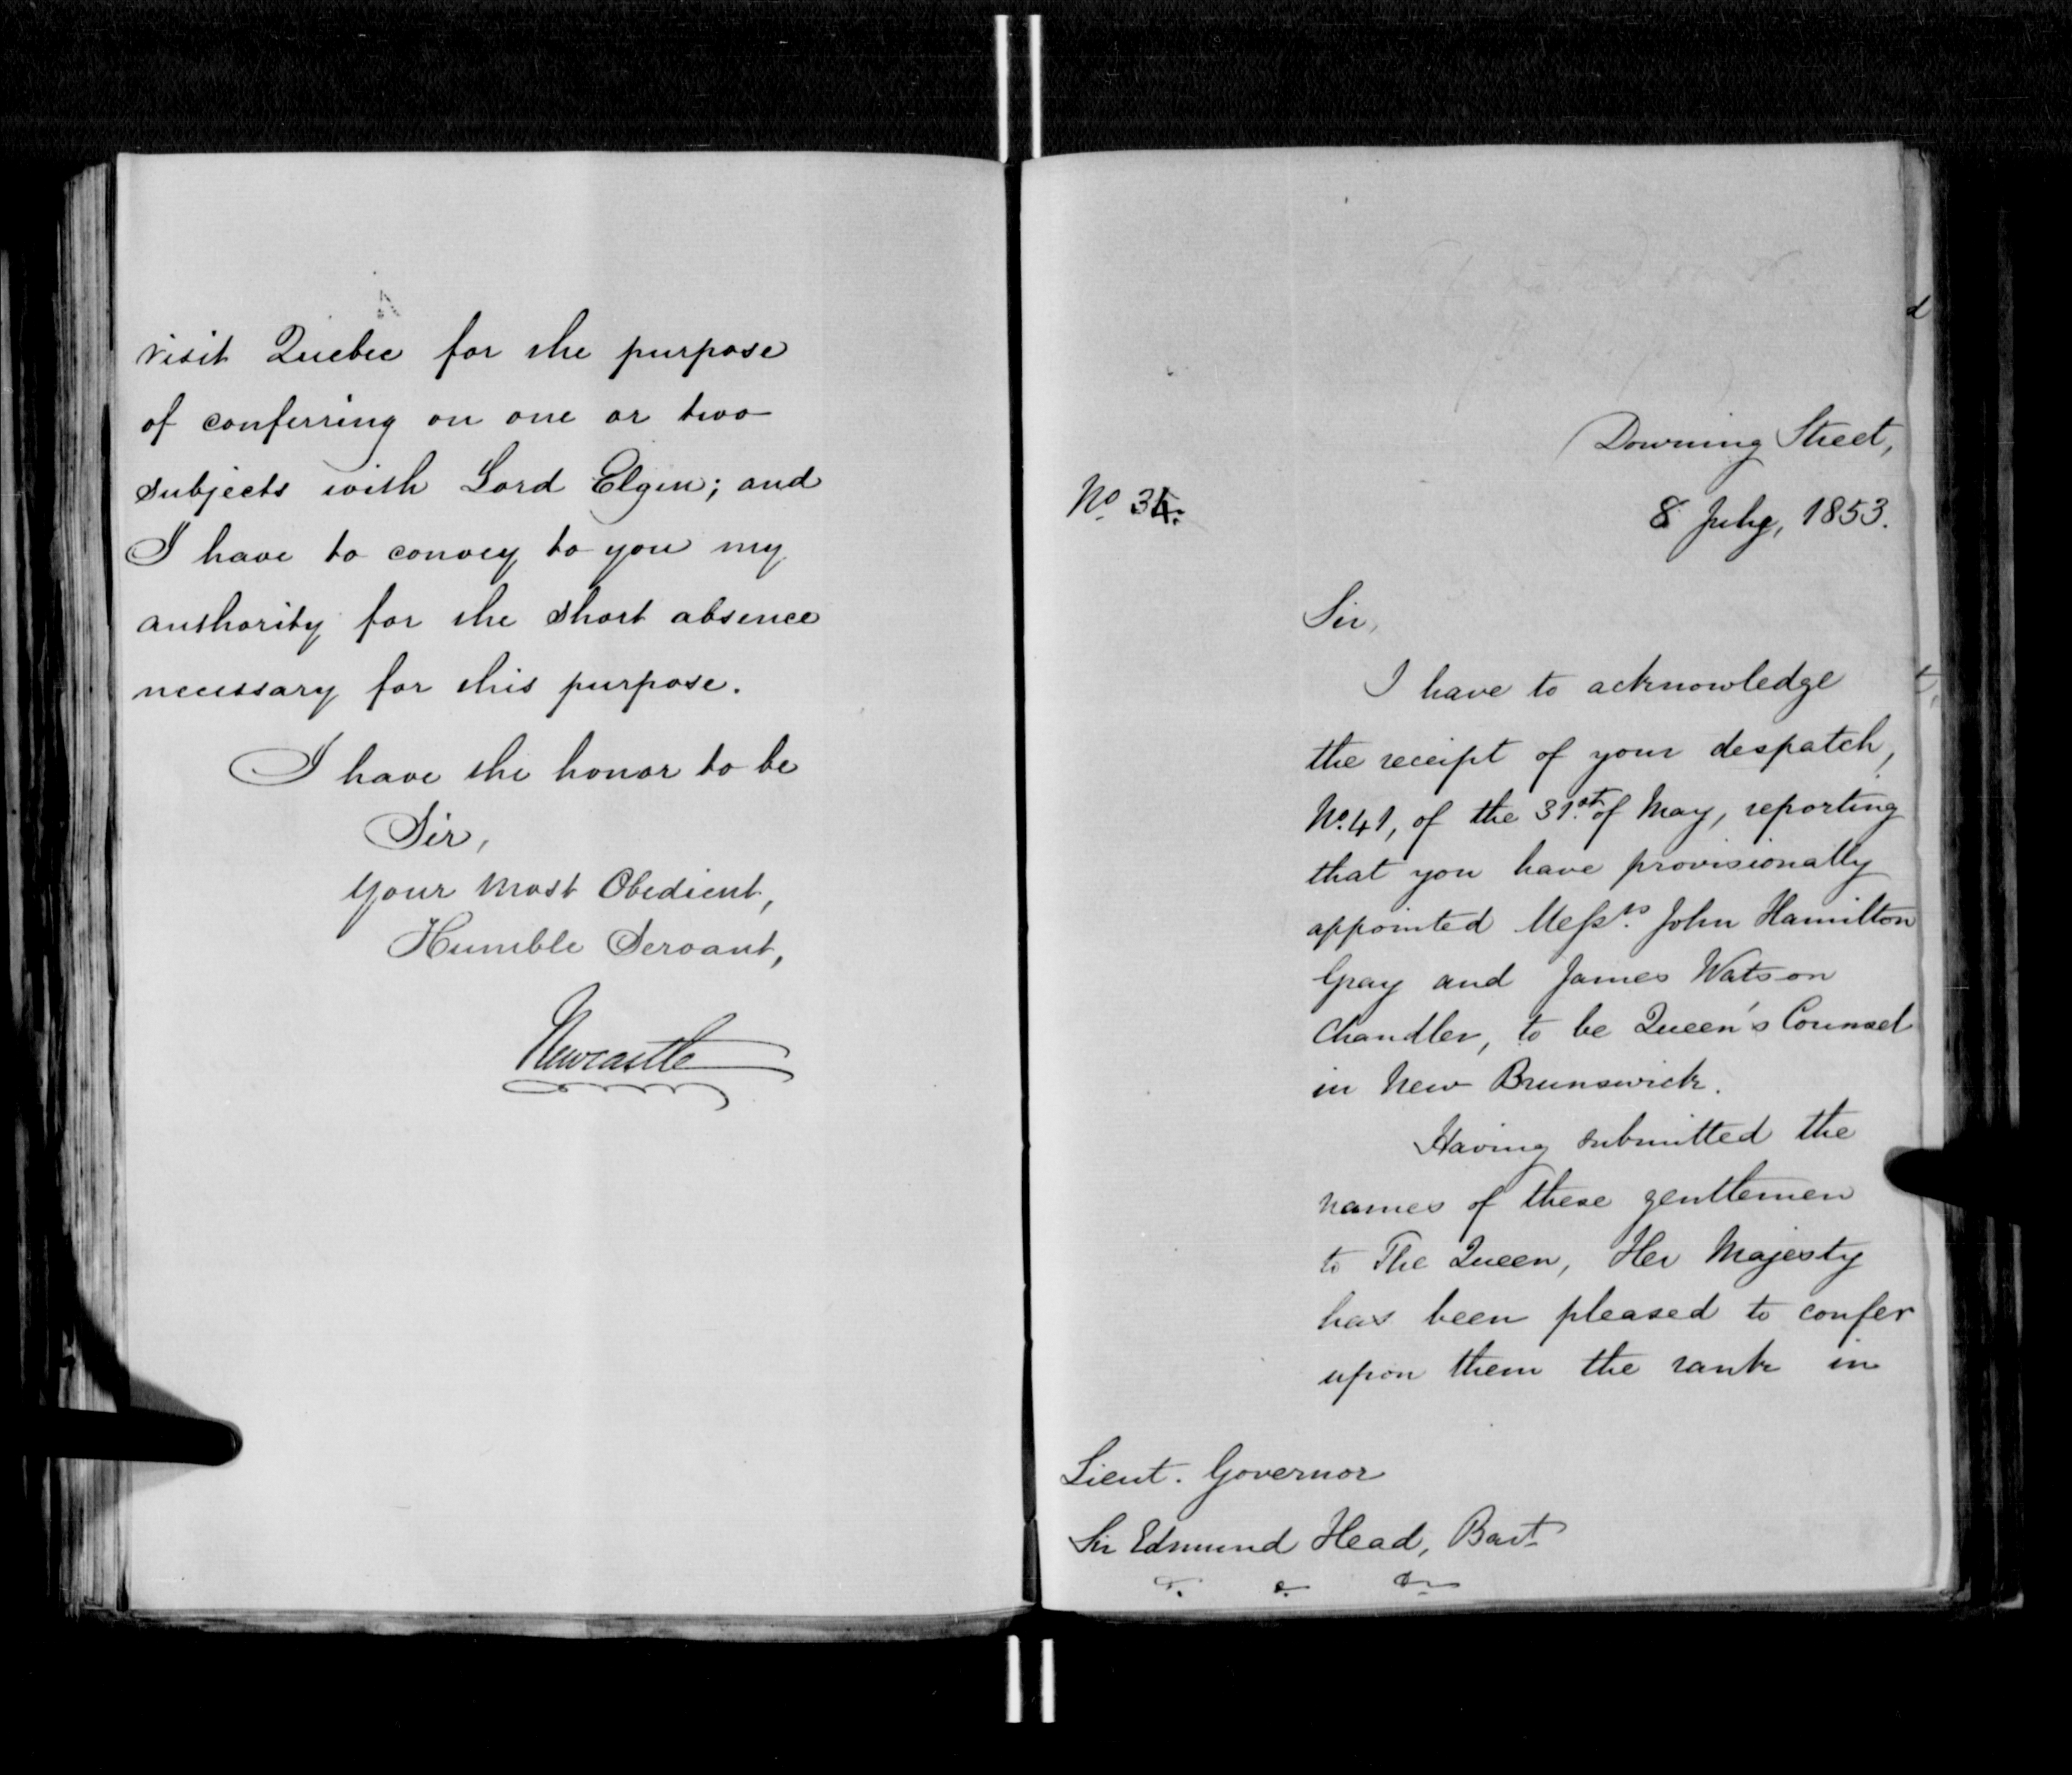 visit Quebec for the purpose
of conferring on one or two
subjects with Lord Elgin; and
I have to convey to you my
authority for the short absence
necessary for this purpose.
I have the honor to be
Sir,
Your most Obedient,
Humble Servant,
Newcastle
Downing Street,
No. 34.
8 July, 1853.
Sir,
I have to acknowledge
the receipt of your despatch,
No. 41, of the 31st. of May, reporting
that you have provisionally
appointed Messrs. John Hamilton
Gray and James Watson
Chandler, to be Queen's Counsel
in New Brunswick.
Having submitted the
names of these gentlemen
to The Queen, Her Majesty
has been pleased to confer
upon them the rank in
Lieut. Governor
Sir Edmund Head, Bart.